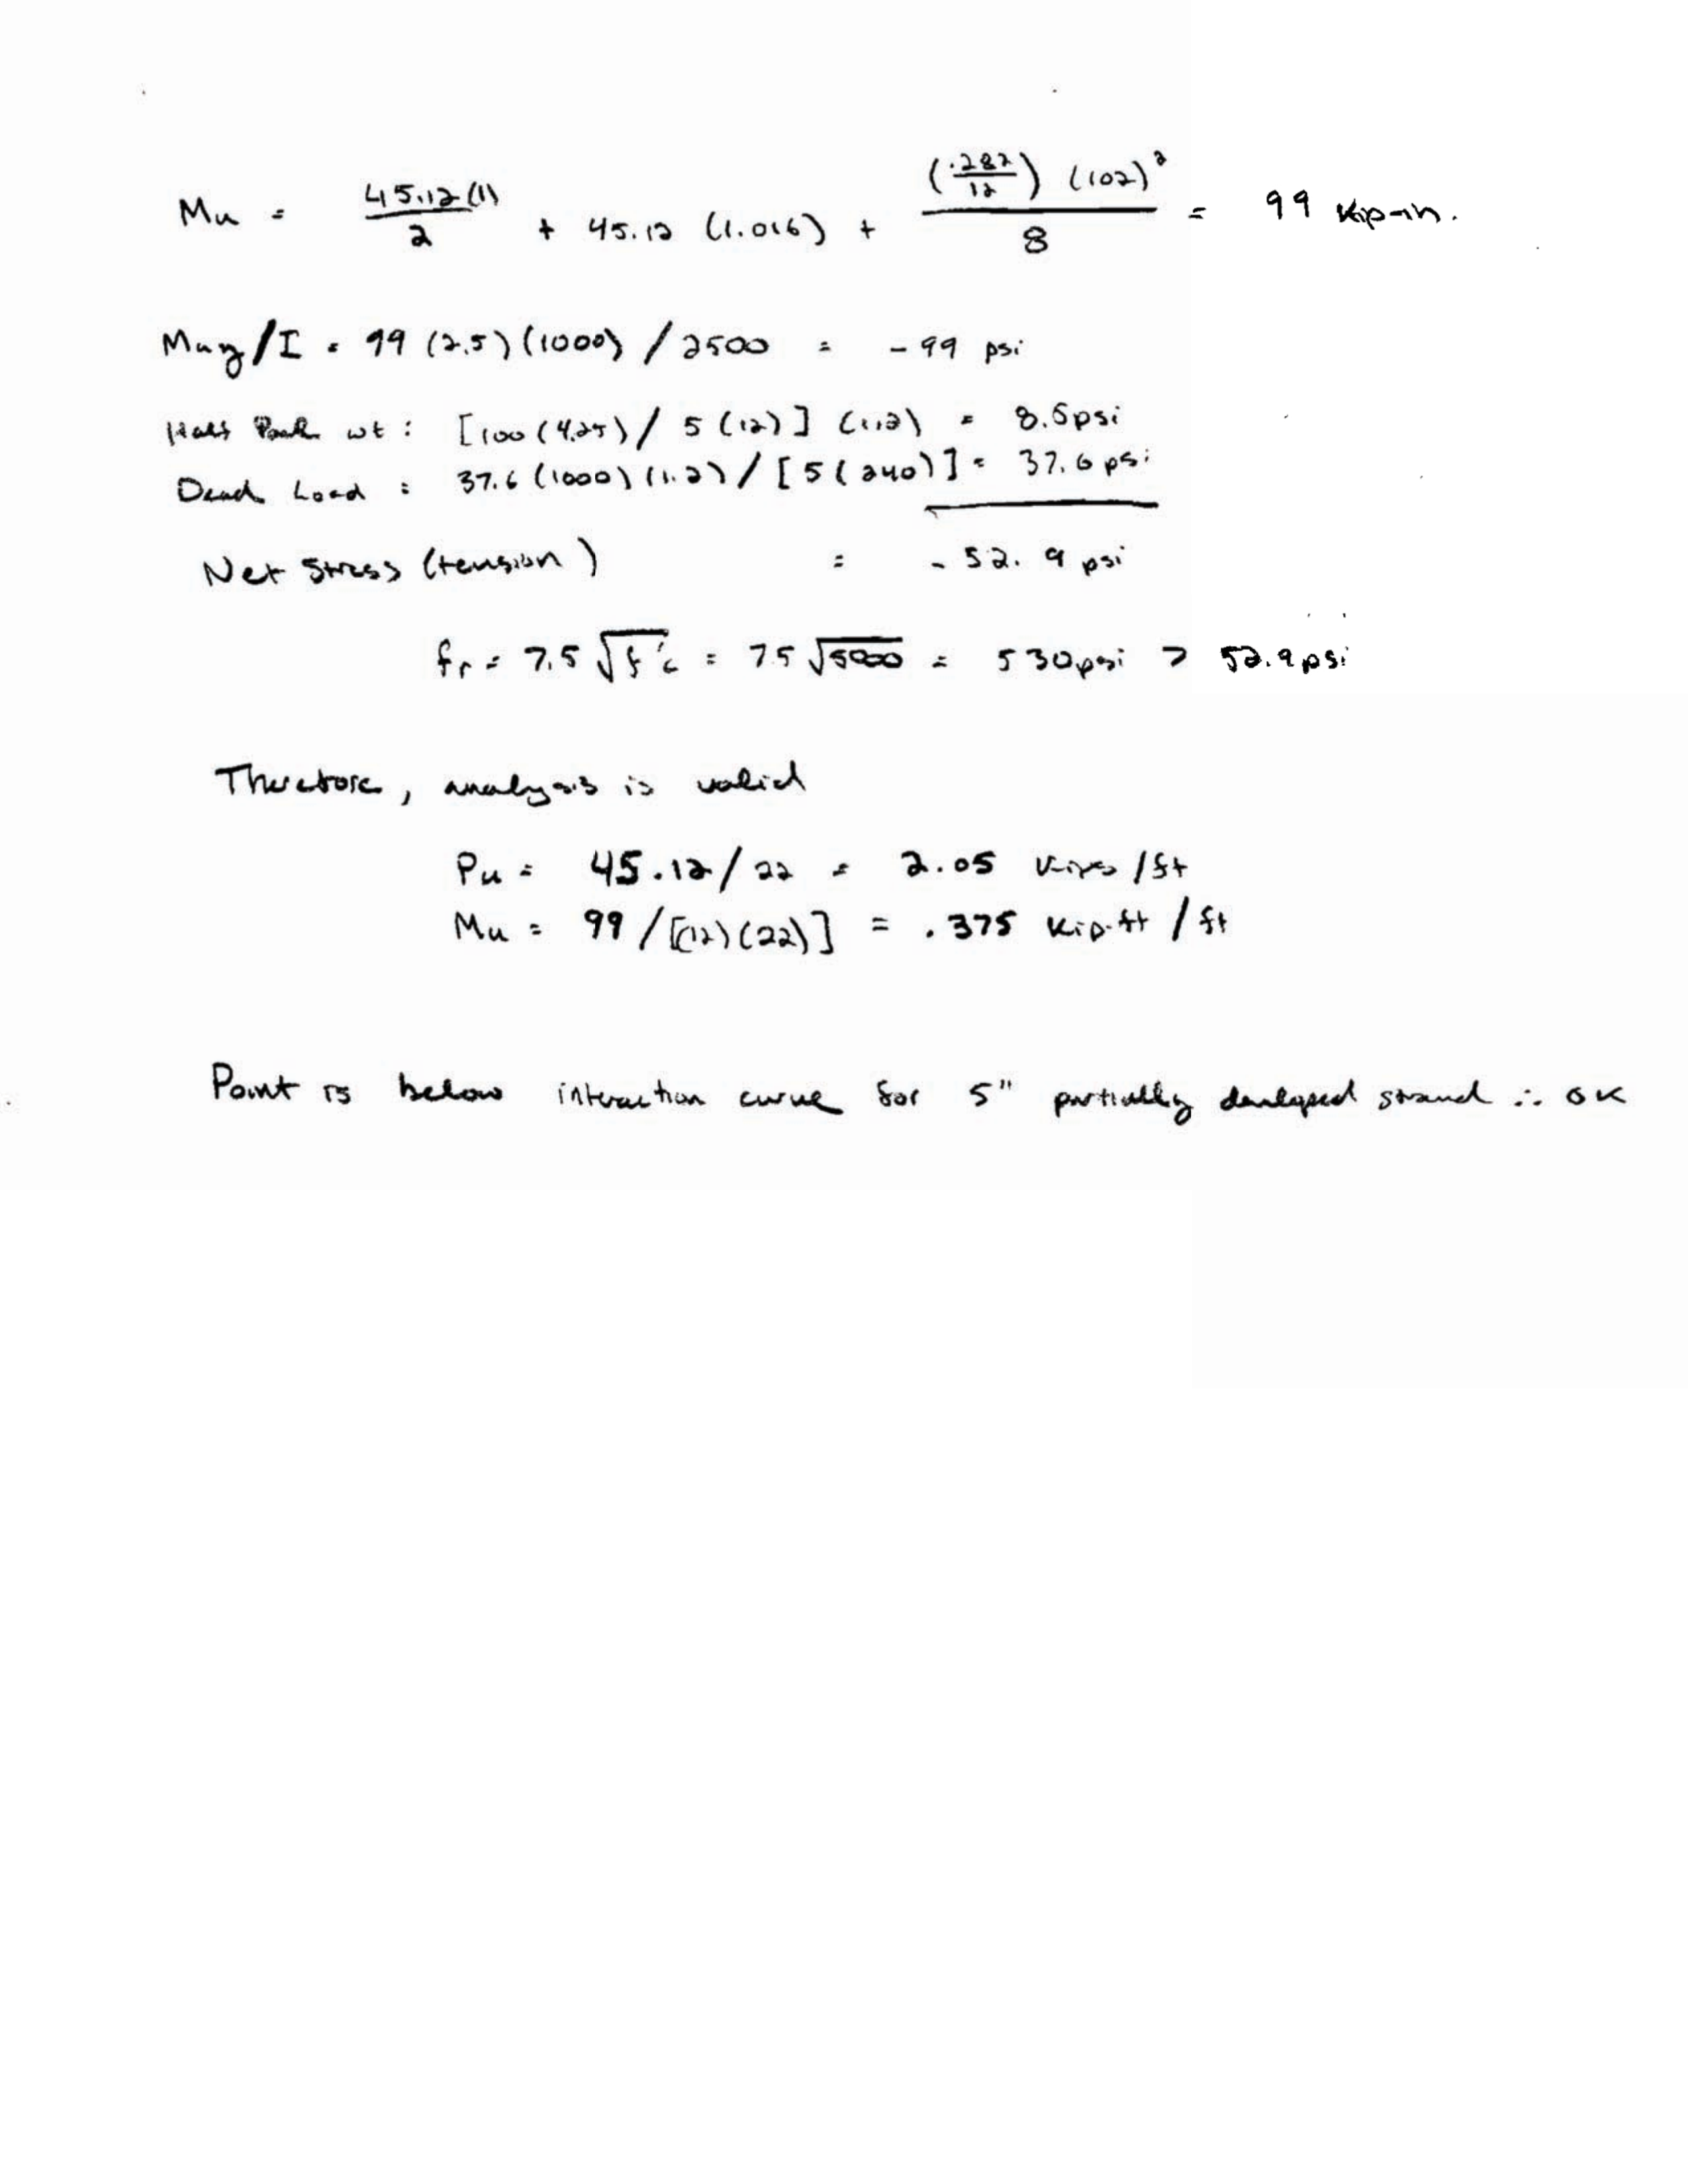 Mu = 45.12(1)/2 + 45.12 (1.016) + (.282/12) (102)²/8 = 99 kip-in.
Muy/I = 99 (2.5)(1000) / 2500 = - 99 psi
Half Panel wt : [100 (4.25) / 5 (12)] (1.2) = 8.5psi
Dead Load : 37.6 (1000) (1.2) / [5 (240)] = 37.6 psi
Net Stress (tension) = - 52.9 psi
fr = 7.5 √f'c = 7.5 √5000 = 530psi > 52.9psi
Therefore, analysis is valid
Pu = 45.12 / 22 = 2.05 kips /ft
Mu = 99 / [(12)(22)] = .375 kip-ft / ft
Point is below interaction curve for 5" partially developed strand ∴ OK